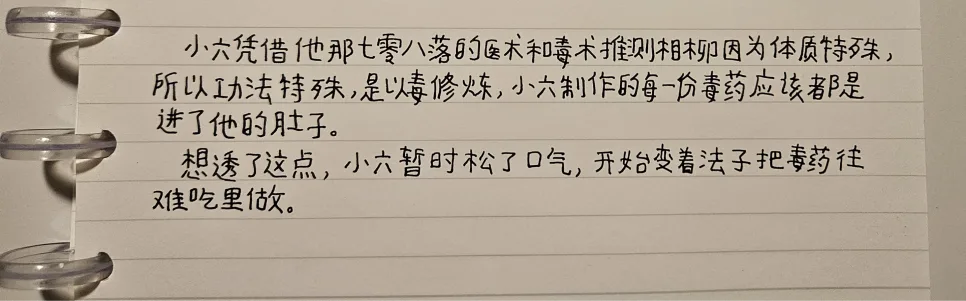 小六凭借他那七零八落的医术和毒术推测相柳因为体质特殊，
所以功法特殊，是以毒修炼，小六制作的每一份毒药应该都是
进了他的肚子。
想透了这点，小六暂时松了口气，开始变着法子把毒药往
难吃里做。